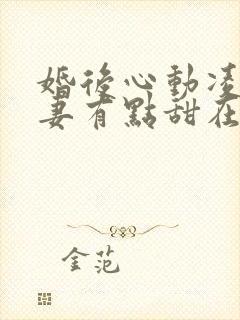 婚後心動凌
妻有點甜在
金范